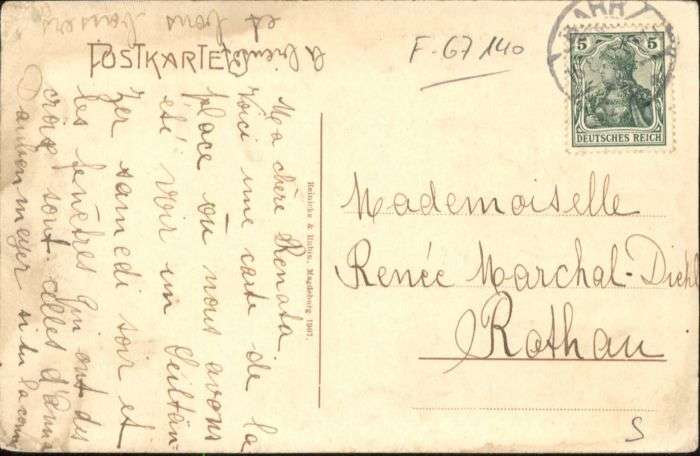 POSTKARTE
F-67 140
5 5
DEUTSCHES REICH
Ma chère Renata.
Voici une carte de la
place où nous avons
été voir un Seiltän-
zer samedi soir et
Les fenêtres qui ont des
croix sont celles d'Anna
si tu la conn
à bientôt
et bons baisers
Reinicke & Rubin, Magdeburg 1907.
Mademoiselle
Renée Marchal-Diehl
Rothau
S